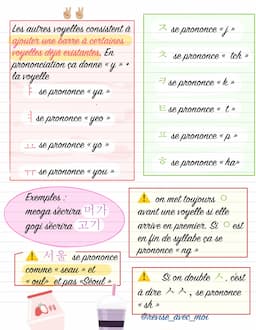 Les autres voyelles consistent à
ajouter une barre à certaines
voyelles déjà existantes. En
prononciation ça donne « y » +
la voyelle
ㅑ se prononce « ya »
ㅕ se prononce « yeo »
ㅛ se prononce « yo »
ㅠ se prononce « you »
ㅈ se prononce « j »
ㅊ se prononce « tch »
ㅋ se prononce « k »
ㅌ se prononce « t »
ㅍ se prononce « p »
ㅎ se prononce « ha»
Exemples :
meoga sècrira 머가
gogi sècrira 고기
서울 se prononce
comme « seau » et
«oul» et pas «Séoul »
on met toujours ㅇ
avant une voyelle si elle
arrive en premier. Si ㅇ est
en fin de syllabe ça se
prononce « ng »
Si on double ㅅ, c'est
à dire ㅅㅅ, se prononce
« sh »
@revise_avec_moi